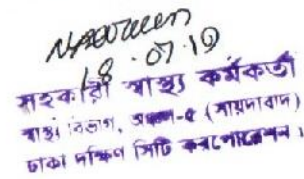 18.07.19
সহকারী স্বাস্থ্য কর্মকর্তা
স্বাস্থ্য বিভাগ, অঞ্চল-৫ (সায়দাবাদ)
ঢাকা দক্ষিণ সিটি কর্পোরেশন।